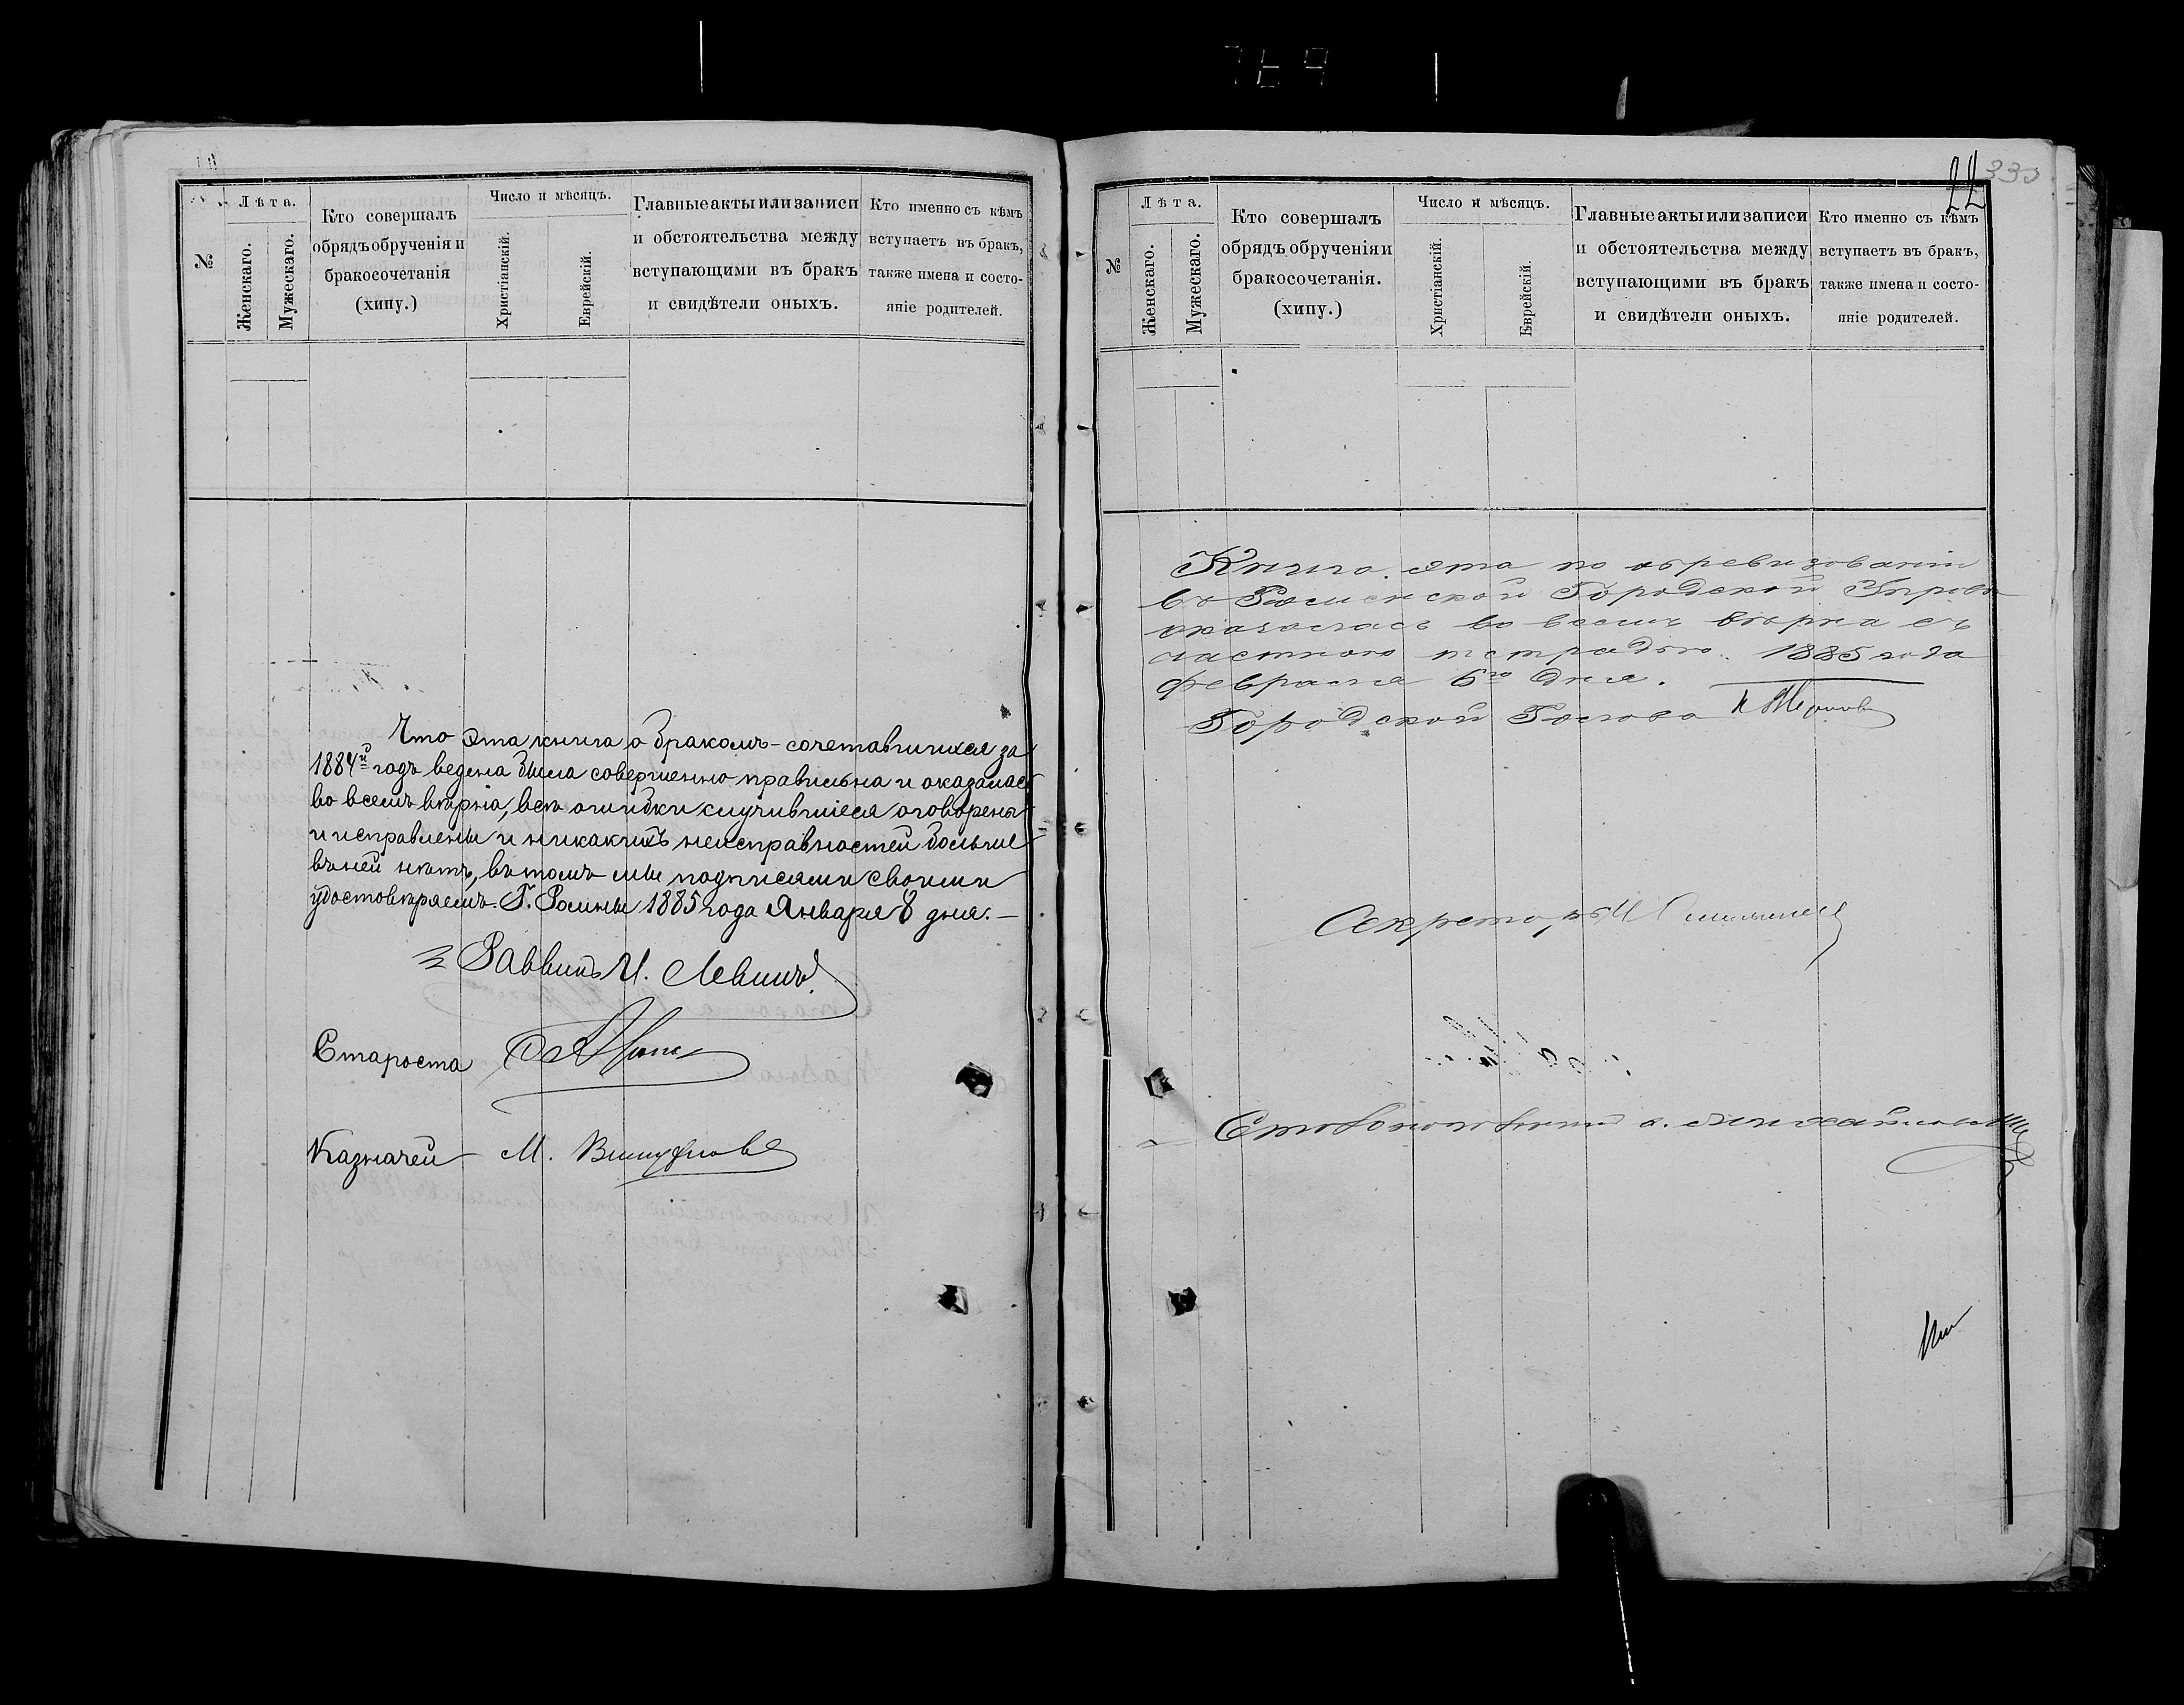 №
Лѣта.
Женскаго.
Мужескаго.
Кто совершалъ
обрядъ обрученія и
бракосочетанія
(хипу.)
Число и мѣсяцъ.
Христіанскій.
Еврейскій.
Главные акты или записи
и обстоятельства между
вступающими въ бракъ
и свидѣтели оныхъ.
Кто именно съ кѣмъ
вступаетъ въ бракъ,
также имена и состо-
яніе родителей.
Что эта книга о бракомъ-сочетавшихся за
1884й годъ ведена была совершенно правильна и оказалась
во всемъ вѣрна, всѣ ошибки случившіеся оговорены
и исправлены и никакихъ неисправностей больше
въ ней нѣтъ, въ томъ мы подписями своими
удостовѣряемъ. Г. Ромны 1885 года Января 8 дня.—
Раввинъ И. Левинъ
Староста
Казначей М.
22
№
Лѣта.
Женскаго.
Мужескаго.
Кто совершалъ
обрядъ обрученія и
бракосочетанія.
(хипу.)
Число и мѣсяцъ.
Христіанскій.
Еврейскій.
Главные акты или записи
и обстоятельства между
вступающими въ бракъ
и свидѣтели оныхъ.
Кто именно съ кѣмъ
вступаетъ въ бракъ,
также имена и состо-
яніе родителей.
Книга эта по обревизованіи
въ Роменской Городской Управѣ
оказалась во всемъ вѣрна съ
частною тетрадью. 1885 года
Февраля 6го дня.
Городской Голова
Секретарь
Столоначальникъ